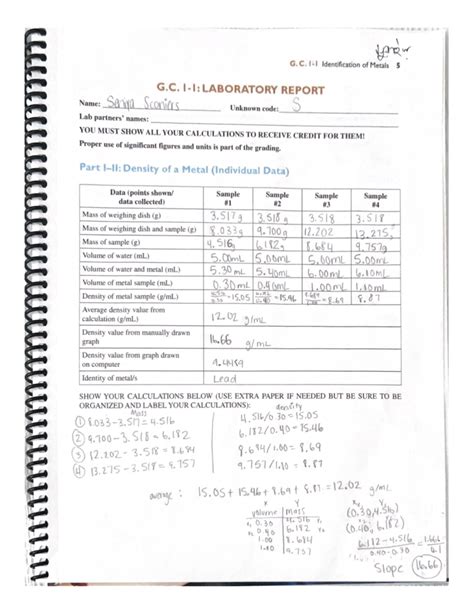 G.C. 1-1 Identification of Metals 5
G.C. 1-1: LABORATORY REPORT
Name: Senya Sconiers Unknown code: S
Lab partners' names:
YOU MUST SHOW ALL YOUR CALCULATIONS TO RECEIVE CREDIT FOR THEM!
Proper use of significant figures and units is part of the grading.
Part I–II: Density of a Metal (Individual Data)
Data (points shown/ data collected) Sample #1 Sample #2 Sample #3 Sample #4
Mass of weighing dish (g) 3.517g 3.518g 3.518 3.518
Mass of weighing dish and sample (g) 8.033g 9.700g 12.202 13.275g
Mass of sample (g) 4.516g 6.182g 8.684 9.757g
Volume of water (mL) 5.00mL 5.00mL 5.00mL 5.00mL
Volume of water and metal (mL) 5.30mL 5.40mL 6.00mL 6.10mL
Volume of metal sample (mL) 0.30mL 0.40mL 1.00mL 1.10mL
Density of metal sample (g/mL) =15.05 =15.46 =8.69 8.87
Average density value from calculation (g/mL) 12.02 g/mL
Density value from manually drawn graph 16.66 g/mL
Density value from graph drawn on computer
Identity of metal/s Lead
SHOW YOUR CALCULATIONS BELOW (USE EXTRA PAPER IF NEEDED BUT BE SURE TO BE
ORGANIZED AND LABEL YOUR CALCULATIONS):
Mass density
① 8.033-3.517=4.516 4.516/0.30=15.05
② 9.700-3.518=6.182 6.182/0.40=15.46
③ 12.202-3.518=8.684 8.684/1.00=8.69
④ 13.275-3.518=9.757 9.757/1.10=8.87
average: 15.05+15.46+8.69+8.87=12.02 g/mL
x y
volume mass
0.30 4.516
0.40 6.182
1.00 8.684
1.10 9.757
(0.30, 4.516)
(0.40, 6.182)
6.182-4.516
0.40-0.30
Slope 16.66